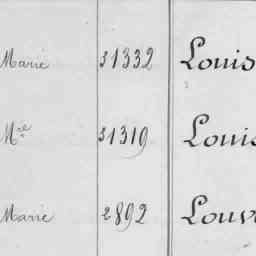 Marié 31332 Louis
Mée 31319 Louis
Marié 2892 Louv